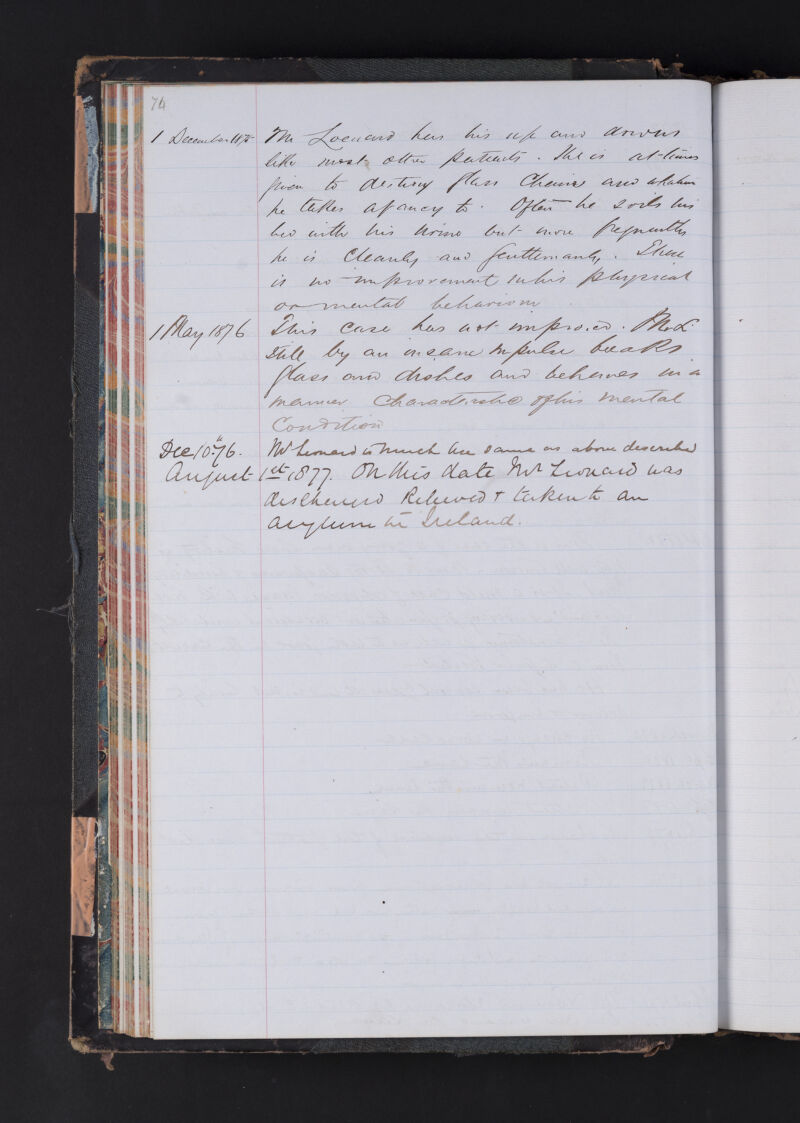 74
1 December 1875 Mr Leonard has his ups and downs
like most other patients. He is at times
given to destroy glass chairs and whatever
he takes a fancy to. Often he soils his
bed with his urine but more frequently
he is cleanly and gentlemanly. There
is no improvement in his physical
or mental behaviour.
1 May 1876 This case has not improved. Mr L
still by an insane impulse breaks
glass and dishes and behaves in a
manner characteristic of his mental
Condition
Dec 10th 76. Mr Leonard is much the same as above described
August 1st 1877. On this date Mr Leonard was
discharged Relieved & taken to an
asylum in Ireland.